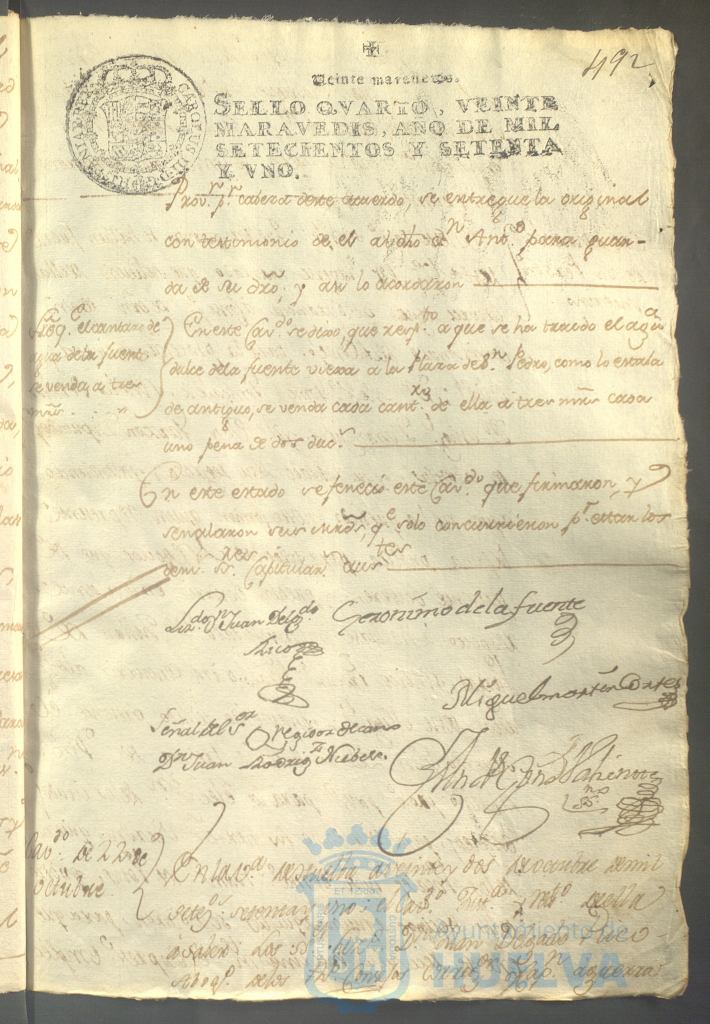 492
Veinte maravedis.
SELLO QVARTO, VEINTE
MARAVEDIS, AÑO DE MIL
SETECIENTOS Y SETENTA
Y VNO.
CAROLUS III D G
Prov.n p.r cabeza deste acuerdo, se entregue la original
con testimonio de el a dho d.n Ant.o para guar-
da de su dro, y asi lo acordaron
el cantaro de
agua dela fuente
se venda, a tres
mrs.
En este Cav.do se dixo, que resp.to a que se ha traido el agua
dulce dela fuente viexa a la Plaza de S.n Pedro, como lo estaba
de antiguo, se venda cada cant.ro de ella a tres mrs cada
uno pena de dos duc.s
En este estado se feneció este Cav.do que firmaron, y
señalaron seis mrds, q.e solo concurrieron p.r estar los
dem.s SS. Capitulares aus.tes
Liz.do D.n Juan Delg.do
Rico
Geronimo de la fuente
Miguel martin Cortes
Señal del S.or Regidor decano
D.n Juan Rodrig.z Niebete.
Cav.do de 22 de
octubre
En la v.a de Huelva a veinte y dos de octubre de mil
setez.s setenta y uno: el Cav.do Just.a y reg.to de ella
a saber: Los SS. Liz.do D.n Juan Delgado Rico
Abog.do de los R.s Consejos Correg.or y Cap.n aguerra
Ayuntamiento de
HUELVA